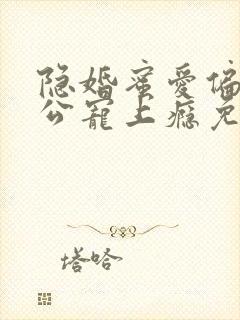 隐婚蜜爱偏
公宠上瘾免
塔哈